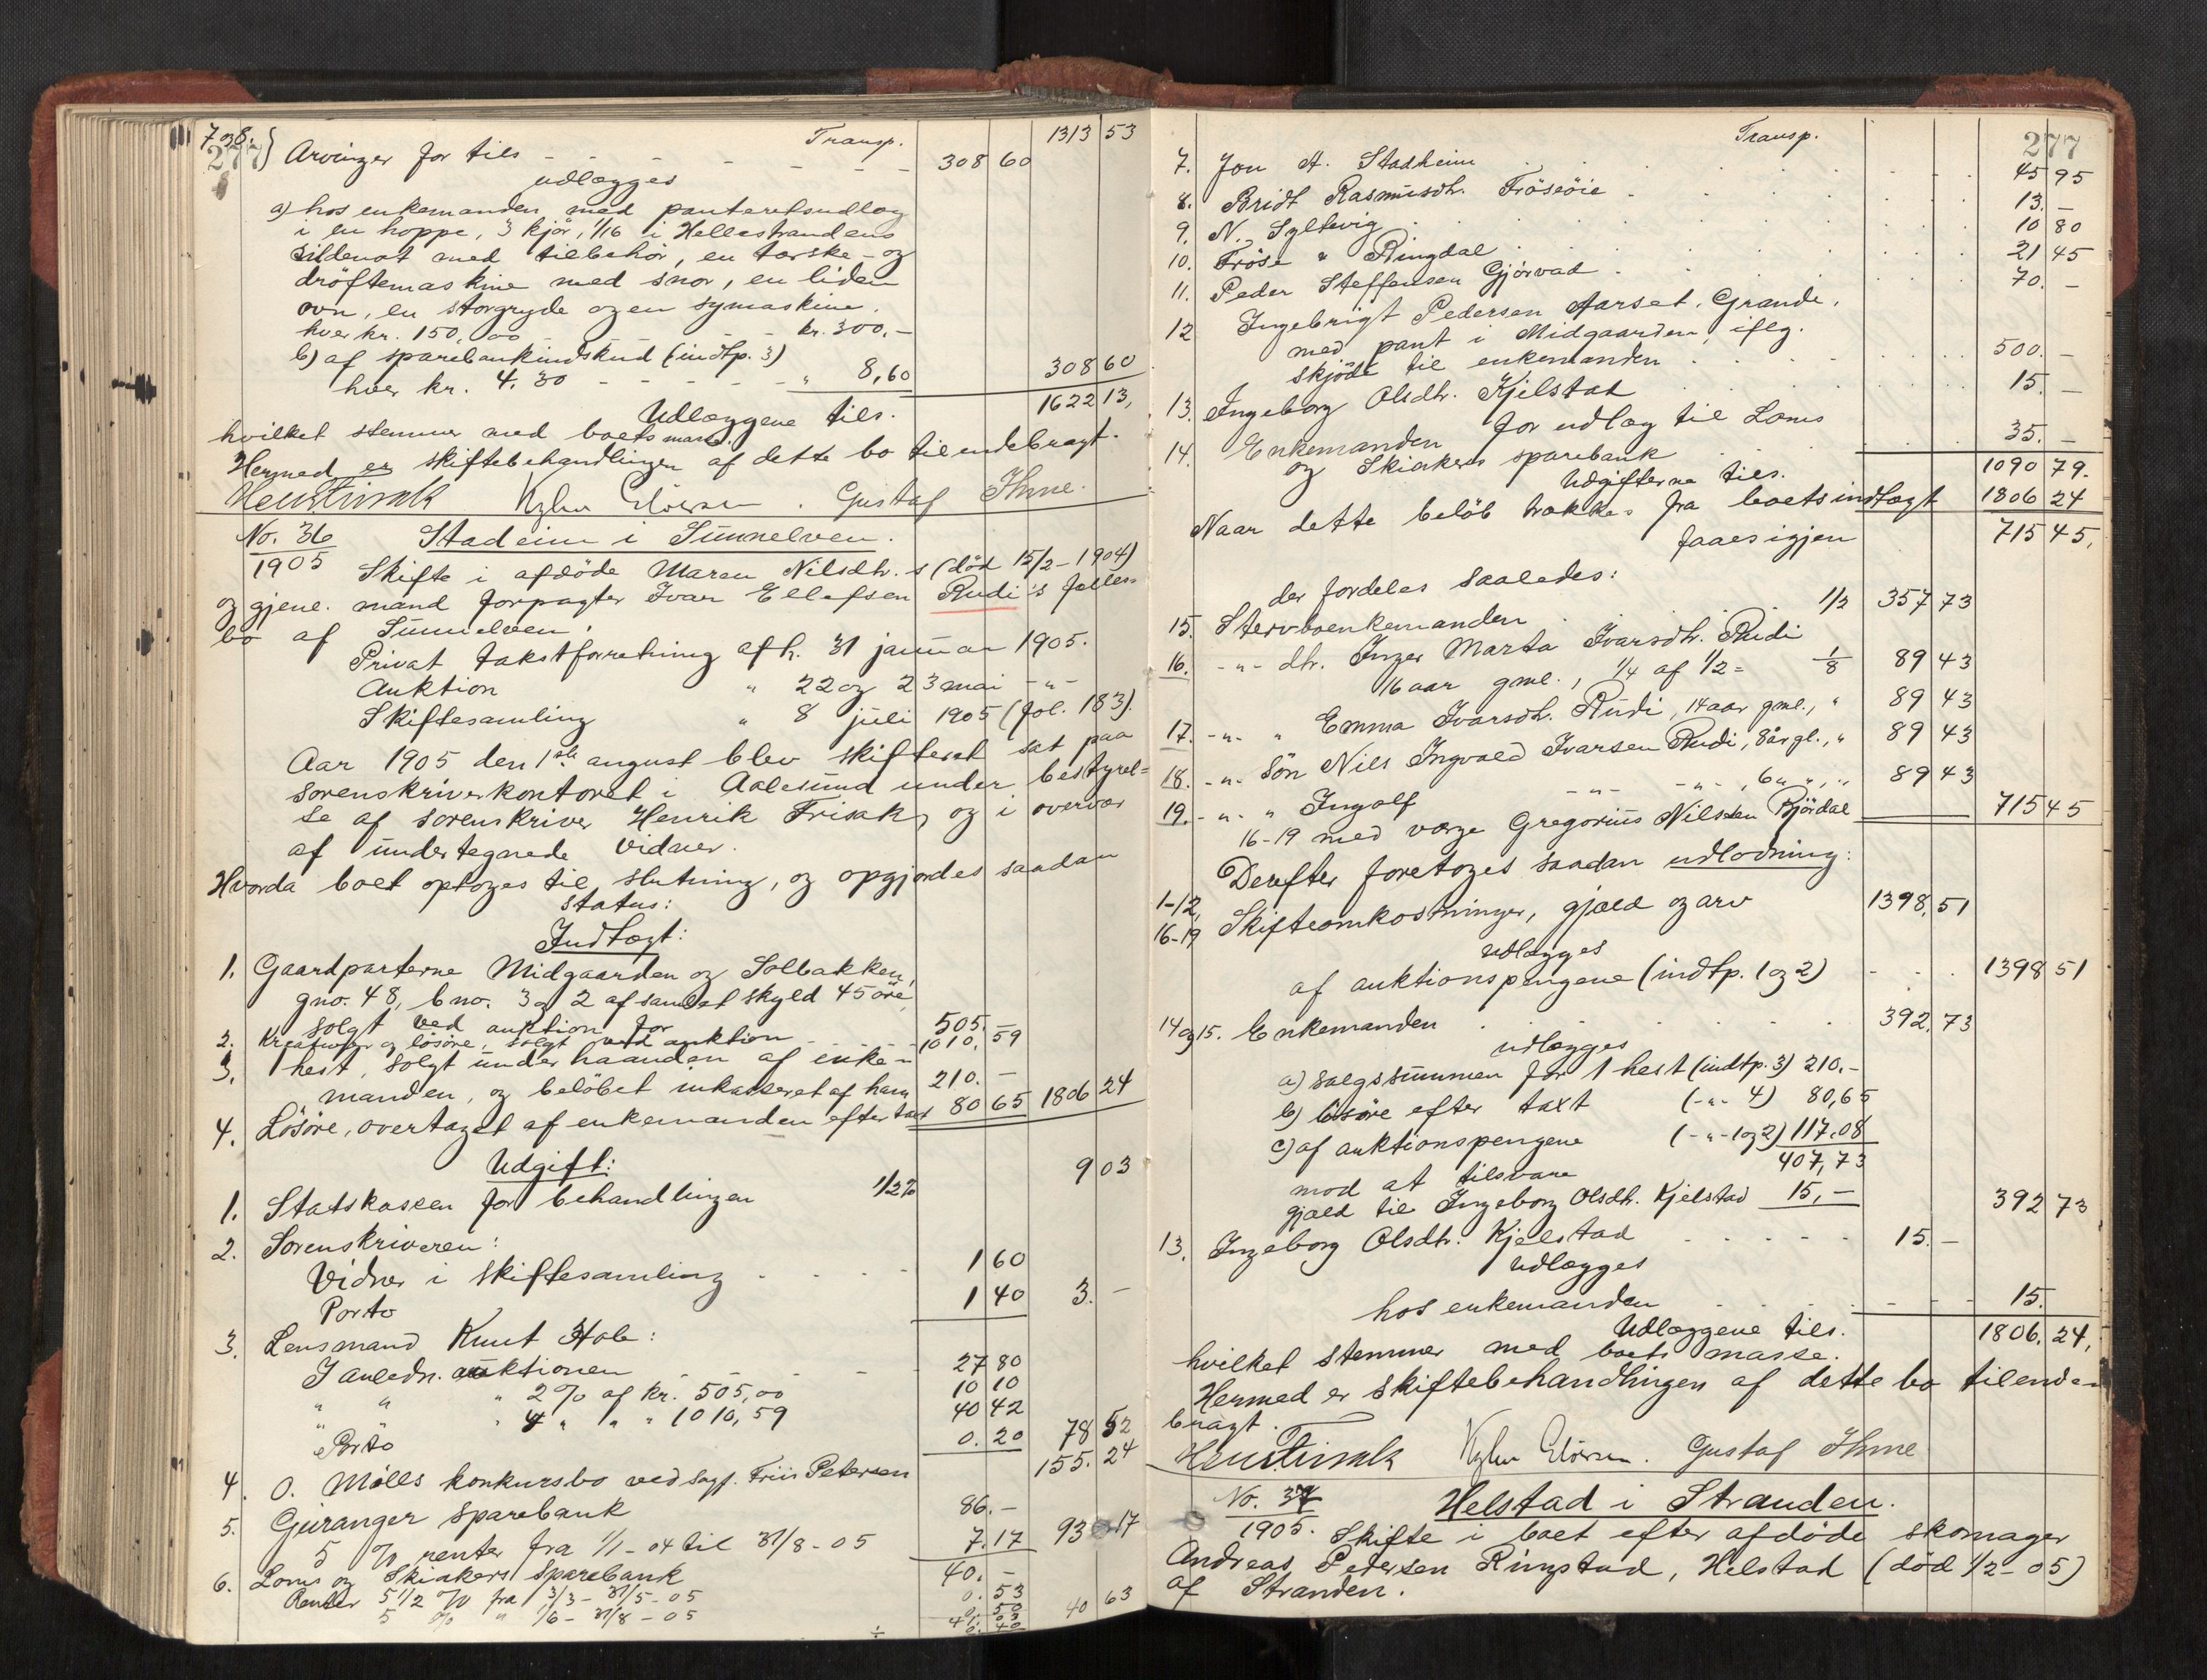 7 og 8.
277
Transp. 1313 53
Arvinger for tils - - - - - - 308 60
udlægges
a) hos enkemanden med panteretsudlæg
i en hoppe, 3 kjör, 1/16 i Hellestrandens
sildenot med tilbehör, en tærske- og
dröftemaskine med snor, en liden
ovn, en storgryde og en symaskine.
hver kr. 150,00 - - - kr. 300,-
b) af sparebankindskud (indtp. 3)
hver kr. 4.30 - - - - - " 8,60 308 60
Udlæggene tils. 1622 13,
hvilket stemmer med boets masse.
Hermed er skiftebehandlingen af dette bo tilendebragt.
Gustaf Ihme.
No. 36
1905
Stadeim i Sunnelven.
Skifte i afdöde Maren Nilsdtr.s (död 15/2-1904)
og gjenl. mand forpagter Ivar Ellefsen Rudi's fælles-
bo af Sunnelven.
Privat takstforretning afh. 31 januar 1905.
Auktion " 22 og 23 mai -"-
Skiftesamling " 8 juli 1905 (fol. 183).
Aar 1905 den 1ste august blev skifteret sat paa
sorenskriverkontoret i Aalesund under bestyrel-
se af sorenskriver Henrik Frisak, og i overvær
af undertegnede vidner.
Hvorda boet optoges til slutning, og opgjordes saadan
status:
Indtægt:
1. Gaardparterne Midgaarden og Solbakken,
gno. 48, bno. 3 og 2 af samlet skyld 45 öre,
solgt ved auktion for 505. -
2. Kreaturer og lösöre, solgt ved auktion 1010. 59
3. 1 hest, solgt under haanden af enke-
manden, og belöbet inkasseret af ham 210. -
4. Lösöre, overtaget af enkemanden efter taxt 80 65 1806 24
Udgift:
1. Statskassen for behandlingen 1/2% 9 03
2. Sorenskriveren:
Vidner i skiftesamling - - - - 1 60
Porto 1 40 3. -
3. Lensmand Knut Hole:
I anledn. auktionen - - - - - 27 80
" " " 2 % af kr. 505,00 10 10
" " " 4 " " " 1010,59 40 42
Porto 0. 20 78 52
4. O. Mölls konkursbo ved sagf. Friis Petersen 155. 24
5. Geiranger sparebank 86. -
5 % renter fra 1/1-04 til 31/8-05 7. 17 93 17
6. Loms og Skiakers Sparebank 40. -
Renter 5 1/2 % fra 3/3 - 31/5-05 0. 53
5 % " 1/6 - 31/8-05 0. 50
41. 03
÷ 0. 40 40 63
277
Transp.
7. Jon A. Stadheim - - - 45 95
8. Bridt Rasmusdtr. Fröseöie - - - 13. -
9. N. Syltevig - - - 10 80
10. Fröse " Ringdal - - - 21 45
11. Peder Steffensen Gjörvad - - - 70. -
12 Ingebrigt Pedersen Aarset, Grande,
med pant i Midgaarden, iflg.
skjöde til enkemanden - - - 500. -
13. Ingeborg Olsdtr. Kjelstad - - - 15. -
14. Enkemanden for udlæg til Loms
og Skiakers sparebank - - - 35. -
Udgifterne tils. 1090 79.
Naar dette belöb trækkes fra boets indtægt 1806 24
faaes igjen 715 45,
der fordeles saaledes:
15. Stervboenkemanden - - - 1/2 357 73
16. -"- dtr. Inger Marta Ivarsdtr. Rudi
16 aar gml., 1/4 af 1/2 = 1/8 89 43
17. -"- " Emma Ivarsdtr. Rudi, 14 aar gml., " 89 43
18. -"- Sön Nils Ingvald Ivarsen Rudi, 8 år gl., " 89 43
19. -"- " Ingolf -"- -"-, 6 " ", " 89 43
16-19 med værge Gregorius Nilsen Björdal 715 45
Derefter foretoges saadan udlodning:
1-12,
16-19 Skifteomkostninger, gjæld og arv 1398, 51
udlægges
af auktionspengene (indtp. 1 og 2) - - - 1398 51
14 og 15. Enkemanden - - - 392, 73
udlægges
a) salgssummen for 1 hest (indtp. 3) 210,-
b) lösöre efter taxt (-"- 4) 80,65
c) af auktionspengene (-"- 1 og 2) 117.08
407,73
mod at tilsvare
gjæld til Ingeborg Olsdtr. Kjelstad 15,- 392 73
13. Ingeborg Olsdtr. Kjelstad - - - 15. -
udlægges
hos enkemanden - - - 15.
Udlæggene tils. 1806. 24,
hvilket stemmer med boets masse.
Hermed er skiftebehandlingen af dette bo tilende-
bragt.
Gustaf Ihme
No. 37
1905.
Helstad i Stranden.
Skifte i boet efter afdöde skomager
Andreas Pedersen Ringstad, Helstad (död 1/2-05)
af Stranden.